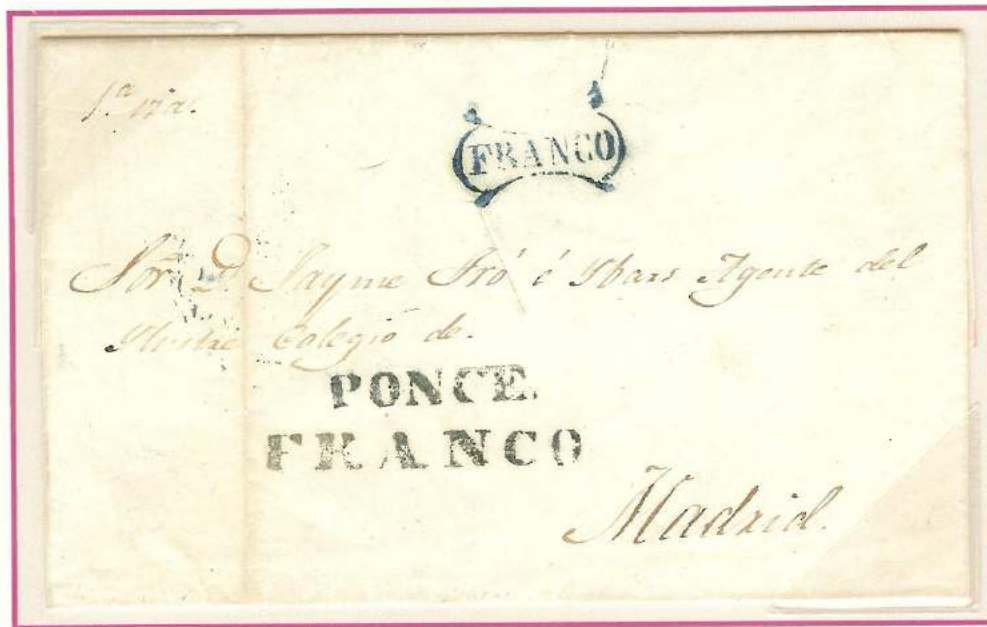 FRANCO
Sor. D. Jayme Fró é Ybars Agente del
Ilustre Colegio de.
PONCE.
FRANCO
Madrid.